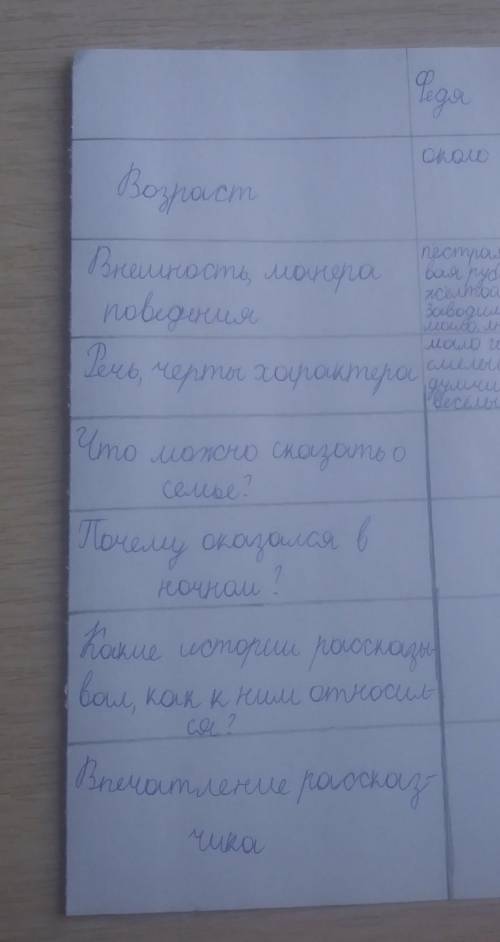 Федя
Возраст
около
Внешность, манера
поведения
пестрая
вая руб
желтой
заводил
мало
Речь, черты характера
мало г
смелы
думчи
веселы
Что можно сказать о
семье?
Почему оказался в
ночном?
Какие истории рассказы-
вал, как к ним относил-
ся?
Впечатление рассказ-
чика